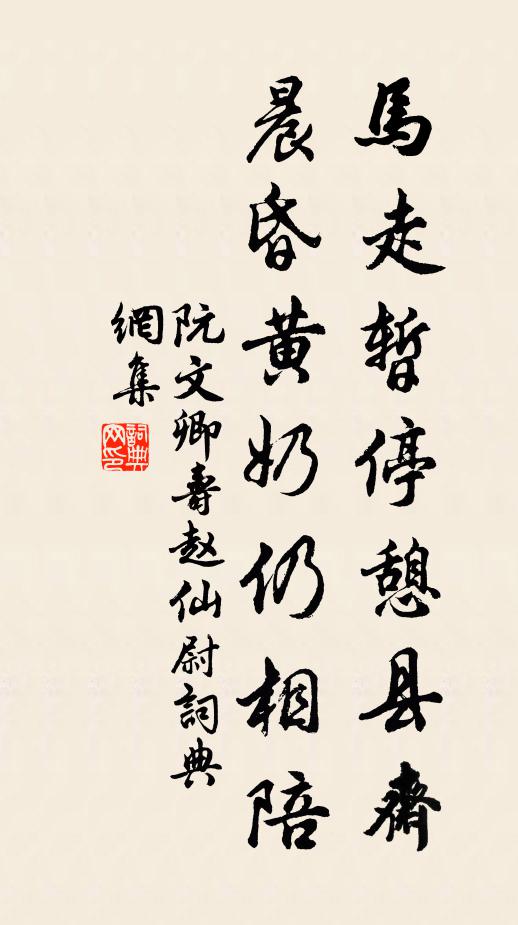 馬走暫停憩县齋
晨昏黄奶仍相陪
阮文卿壽赵仙尉詞典
網集
詞典網印